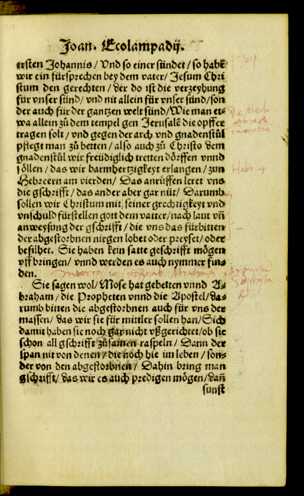 Joan. Ecolampadij.
ersten Johannis / Vnd so einer sündet / so habē
wir ein fürsprechen bey dem vater / Jesum Chri
stum den gerechten / Der do ist die verzeyhung
für vnser sünd / vnd nit allein für vnser sünd / son
der auch für der gantzen welt sünd / Wie man et
wa allein zů dem tempel gen Jerusalē die opffer
tragen solt / vnd gegen der arch vnd gnadenstůl
pflegt man zů betten / also auch zů Christo dem
gnadenstůl wir freüdiglich tretten dörffen vnnd
söllen / das wir barmhertzigkeyt erlangen / zun
Hebreern am vierden / Das anrüffen leret vns
die gschrifft / das ander aber gar nüt / Darumb
sollen wir Christum mit seiner grechtigkeyt vnd
vnschuld fürstellen gott dem vater / nach laut vñ
anweysung der gschrifft / die vns das fürbitten
der abgestorbnen niergen lobet oder preyset / oder
befilhet. Sie haben kein satte geschrifft mögen
vff bringen / vnnd werden es auch nymmer fin=
den.
Sie sagen wol / Mose hat gebetten vnnd A=
braham / die Propheten vnnd die Apostel / da=
rumb bitten die abgestorbnen auch für vns der
massen / das wir sie für mittler sollen han / Sich
damit haben sie noch gar nicht vßgerichtet / ob sie
schon all gschrifft zůsamen raspeln / Dann der
span nit von denen / die noch hie im leben / son=
der von den abgestorbnen / Dahin bring man
gschrifft / das wir es auch predigen mögen / Dañ
sunst